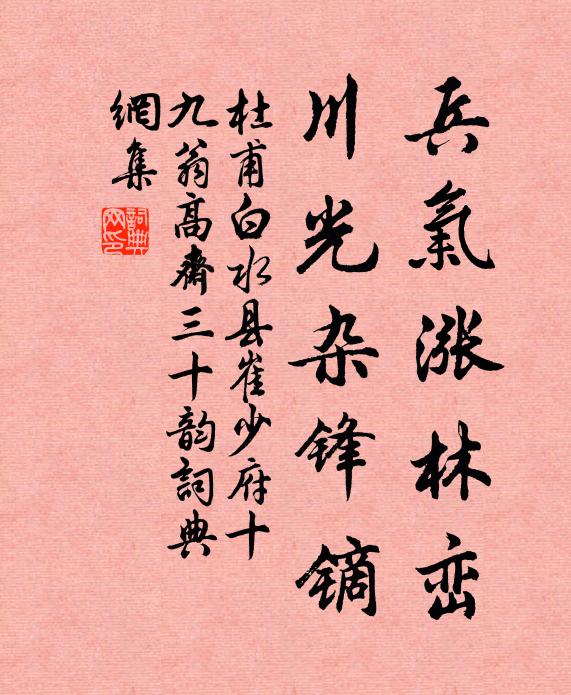 兵氣漲林峦
川光杂锋镝
杜甫白水县崔少府十
九翁高齋三十韵詞典
網集
詞典网印